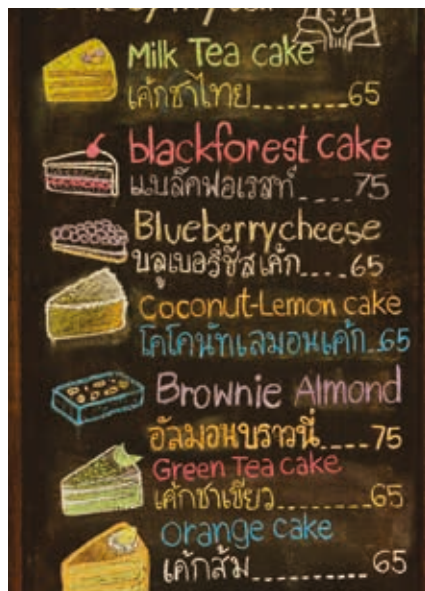 Milk Tea cake
เค้กชาไทย........65
blackforest cake
แบล๊คฟอเรสท์....75
Blueberrycheese
บลูเบอรี่ชีสเค้ก....65
Coconut-Lemon cake
โคโคนัทเลมอนเค้ก..65
Brownie Almond
อัลมอนบราวนี่....75
Green Tea cake
เค้กชาเขียว........65
Orange cake
เค้กส้ม..........65